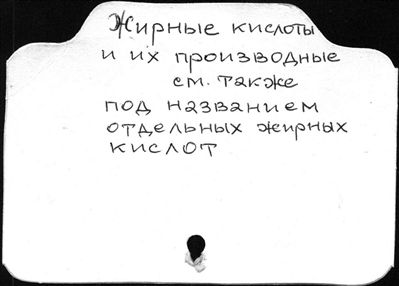 Жирные кислоты
и их производные
см. также
под названием
отдельных жирных
кислот